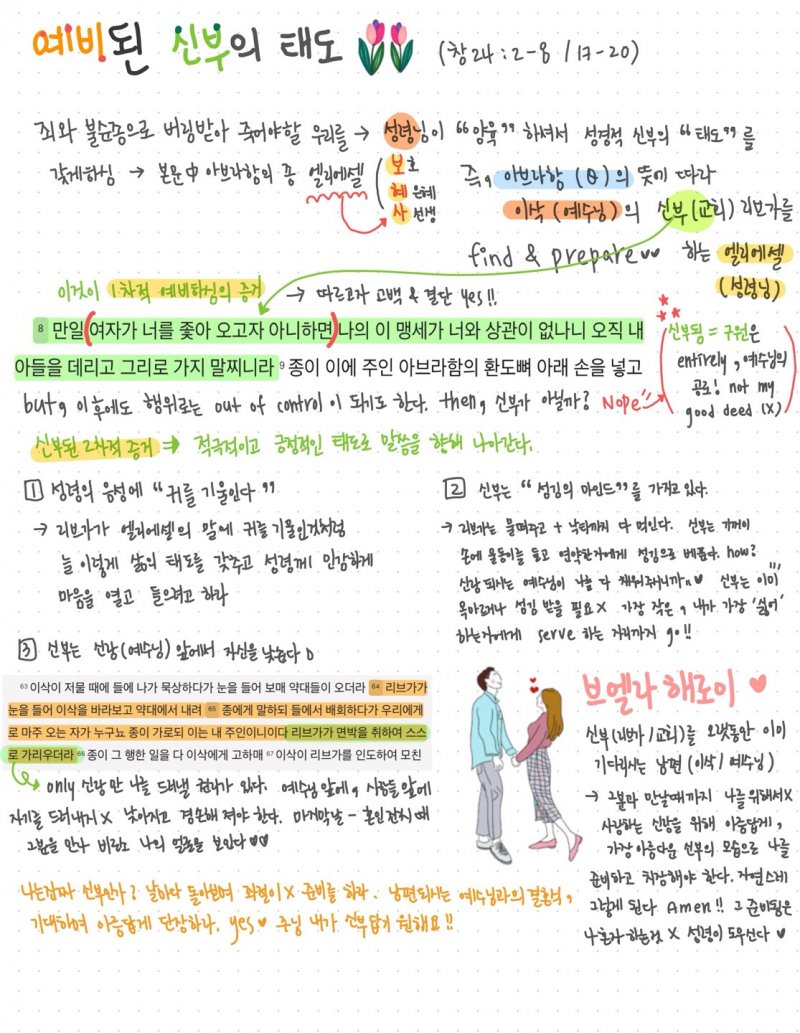 예비된 신부의 태도 (창24:2-8 / 17-20)
죄와 불순종으로 버림받아 죽어야할 우리를 → 성령님이 "양육" 하셔서 성경적 신부의 "태도"를
갖게하심 → 본문中 아브라함의 종 엘리에셀
보호
혜 은혜
사 선생
즉, 아브라함 (θ)의 뜻에 따라
이삭(예수님)의 신부(교회) 리브가를
find & prepare♥♥ 하는 엘리에셀
(성령님)
이것이 1차적 예비하심의 증거 → 따르고자 고백 & 결단 yes!!
8 만일 (여자가 너를 좇아 오고자 아니하면) 나의 이 맹세가 너와 상관이 없나니 오직 내
아들을 데리고 그리로 가지 말찌니라 9 종이 이에 주인 아브라함의 환도뼈 아래 손을 넣고
신부됨 = 구원은
entirely, 예수님의
공로! not my
good deed (X)
but, 이후에도 행위로는 out of control 이 되기도 한다. then, 신부가 아닐까? Nope
신부된 2차적 증거 ⇒ 적극적이고 긍정적인 태도로 말씀을 향해 나아간다.
1 성령의 음성에 "귀를 기울인다"
→ 리브가가 엘리에셀의 말에 귀를 기울인것처럼
늘 이렇게 삶의 태도를 갖추고 성령께 민감하게
마음을 열고 들으려고 하라
2 신부는 "섬김의 마인드"를 가지고 있다.
→ 리브가는 물떠주고 + 낙타까지 다 먹인다. 신부는 기꺼이
손에 물동이를 들고 연약한자에게 섬김으로 베푼다. how?
신랑되시는 예수님이 나를 다 채워주니까~♥ 신부는 이미
목마르거나 섬김 받을 필요 X 가장 작은, 내가 가장 '싫어'
하는자에게 serve 하는 자리까지 go!!
3 신부는 신랑(예수님) 앞에서 자신을 낮춘다
63 이삭이 저물 때에 들에 나가 묵상하다가 눈을 들어 보매 약대들이 오더라 64 리브가가
눈을 들어 이삭을 바라보고 약대에서 내려 65 종에게 말하되 들에서 배회하다가 우리에게
로 마주 오는 자가 누구뇨 종이 가로되 이는 내 주인이니이다 리브가가 면박을 취하여 스스
로 가리우더라 66 종이 그 행한 일을 다 이삭에게 고하매 67 이삭이 리브가를 인도하여 모친
only 신랑만 나를 드러낼 권리가 있다. 예수님 앞에, 사람들 앞에
자기를 드러내기 X 낮아지고 겸손해 져야 한다. 마지막날 - 혼인잔치 때
그분을 만나 비로소 나의 얼굴을 보인다♡♡
브엘라 해로이 ♥
신부(리브가/교회)를 오랫동안 이미
기다리시는 남편 (이삭/예수님)
→ 그분과 만날때까지 나를 위해서X
사랑하는 신랑을 위해 아름답게,
가장 아름다운 신부의 모습으로 나를
준비하고 치장해야 한다. 자연스레
그렇게 된다 Amen!! 그 준비됨은
나혼자 하는것 X 성령이 도우신다♥
나는진짜 신부인가? 날마다 돌아보며 좌절이X 준비를 하라. 남편되시는 예수님과의 결혼식,
기대하며 아름답게 단장하라. yes♥ 주님 내가 신부답기 원해요!!